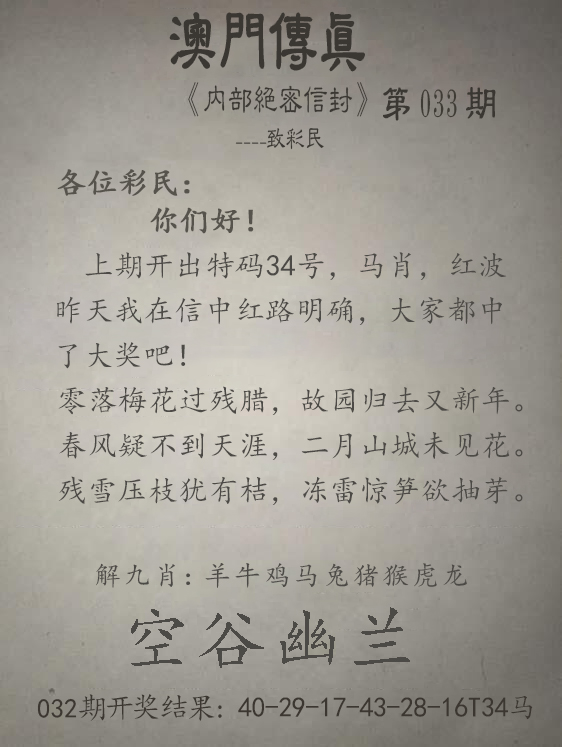 澳門傳真
《内部絕密信封》第033期
----致彩民
各位彩民：
你们好！
上期开出特码34号，马肖，红波
昨天我在信中红路明确，大家都中
了大奖吧！
零落梅花过残腊，故园归去又新年。
春风疑不到天涯，二月山城未见花。
残雪压枝犹有桔，冻雷惊笋欲抽芽。
解九肖：羊牛鸡马兔猪猴虎龙
空谷幽兰
032期开奖结果：40-29-17-43-28-16T34马